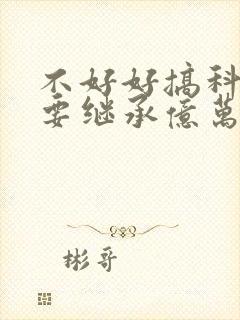 不好好搞科
要继承億萬
彬哥